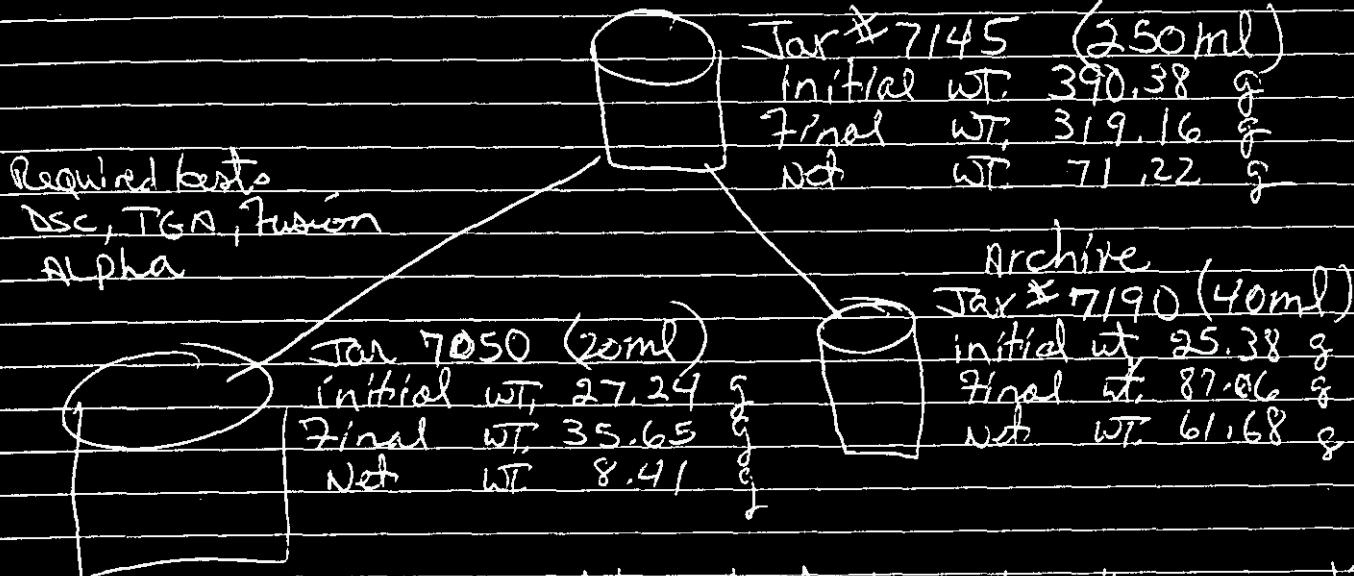 Jar # 7145 (250ml)
initial wt. 390.38 g
Final wt. 319.16 g
Net wt. 71.22 g
Required tests
DSC, TGA, Fusion
Alpha
Archive
Jar # 7190 (40ml)
initial wt. 25.38 g
Final wt. 87.06 g
Net wt. 61.68 g
Jar 7050 (20ml)
initial wt. 27.24 g
Final wt. 35.65 g
Net wt. 8.41 g